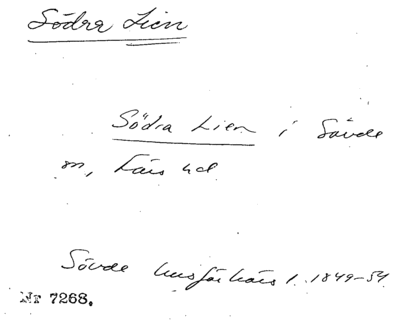 Södra Lien
Södra Lien i Sövde
sn, Färs hd
Sövde husförhörs l. 1849-54
Nr 7268.